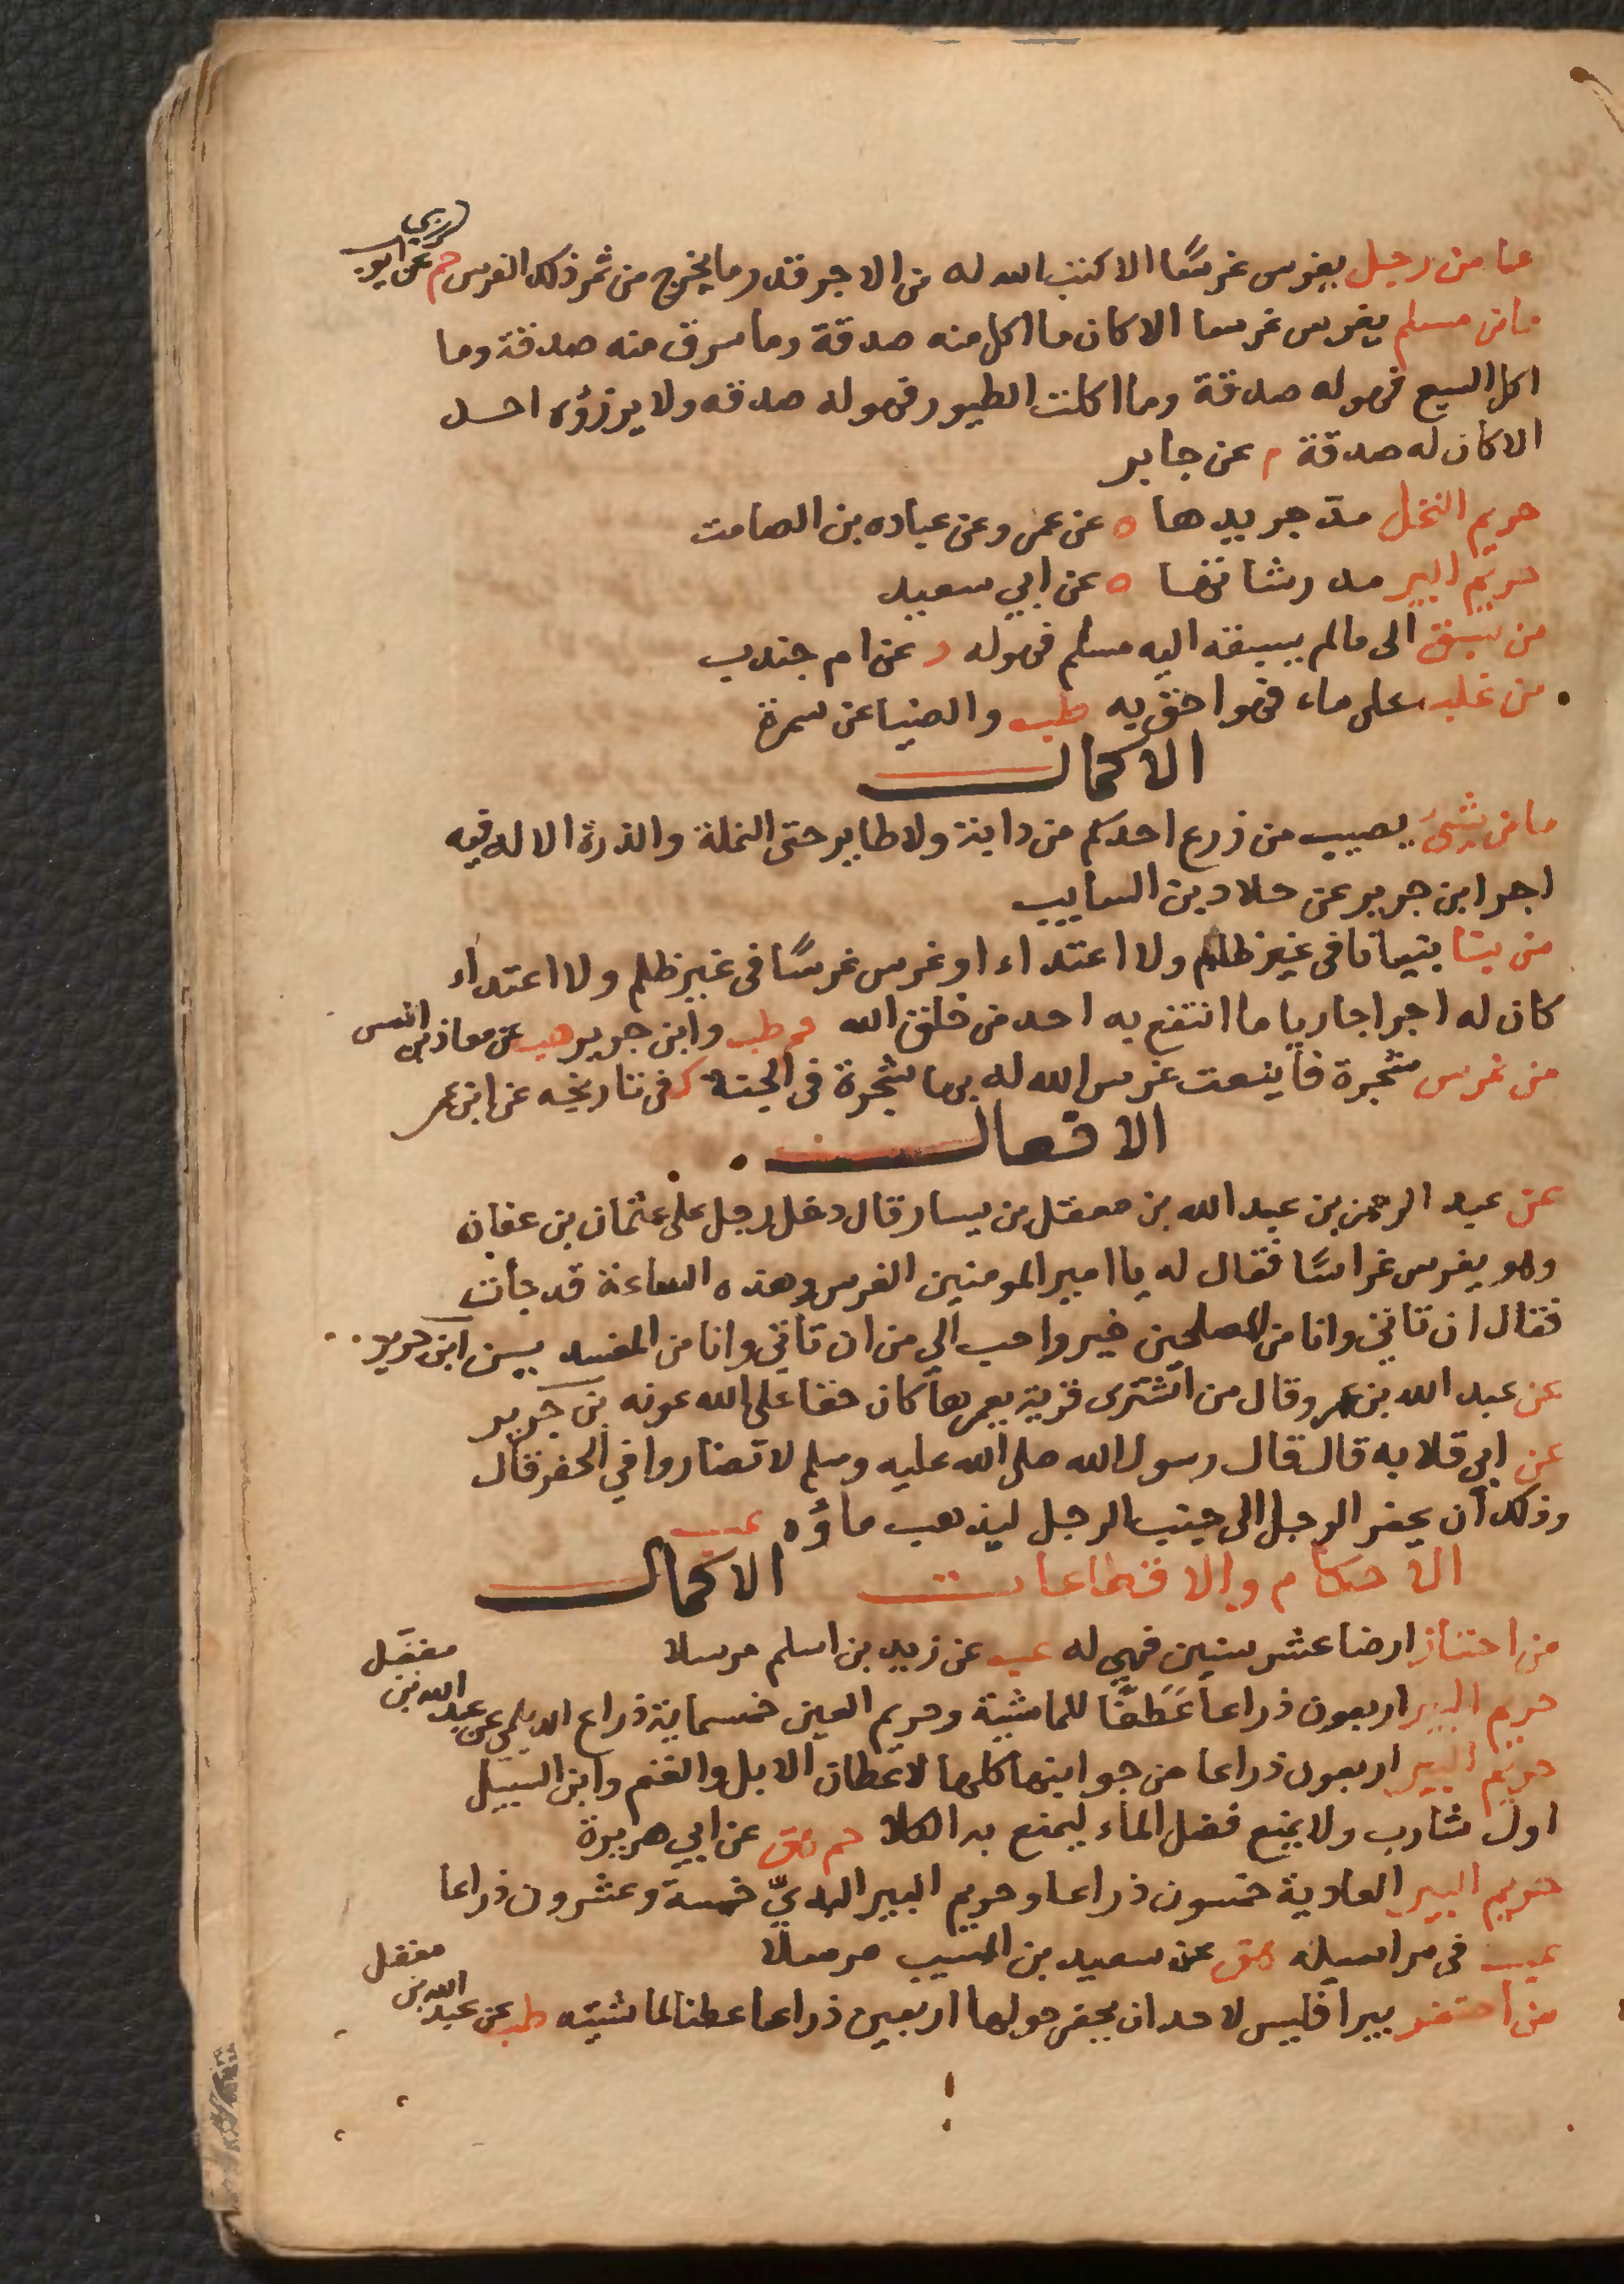 ما من رجل يغرس غرسًا الا كتب الله له من الاجر قدر ما يخرج من ثمر ذلك الغرس حم عن ابي ايوب
ما من مسلم يغرس غرسا الا كان ما اكل منه صدقة وما سرق منه صدقة وما
اكل السبع فهو له صدقة وما اكلت الطيور فهو له صدقه ولا يرزؤه احد
الا كان له صدقة م عن جابر
حريم النخل مد جريدها ه عن عمر وعن عباده بن الصامت
حريم البير مد رشائها ه عن ابي سعيد
من سبق الى مالم يسبقه اليه مسلم فهو له د عن ام جندب
من غلب على ماء فهو احق به طب والضيا عن سمرة
الاكمال
ما من شيء يصيب من زرع احدكم من دابة ولا طاير حتى النملة والذرة الا له فيه
اجر ابن جرير عن خلاد بن السايب
من بنا بنيانا في غير ظلم ولا اعتداء او غرس غرسًا في غير ظلم ولا اعتداء
كان له اجرا جاريا ما انتفع به احد من خلق الله حم طب وابن جرير هب عن معاذ بن انس
من غرس شجرة فأينعت غرس الله له بها شجرة في الجنة ك في تاريخه عن ابن عمر
الافعال
عن عبد الرحمن بن عبد الله بن معقل بن يسار قال دخل رجل على عثمان بن عفان
وهو يغرس غراسًا فقال له يا امير المومنين الغرس وهذه الساعة قد جأت
فقال ان تاتي وانا من المصلحين خير واحب الي من ان تاتي وانا من المفسد يسن ابن جرير
عن عبد الله بن عمر وقال من اشترى قرية يعمرها كان حقا على الله عونه بن جرير
عن ابي قلابه قال قال رسول الله صلى الله عليه وسلم لا تضاروا في الحفر قال
وذلك ان يحفر الرجل الى جنب الرجل ليذهب ماؤه عب
الاحكام والاقطاعات الاكمال
من احتاز ارضا عشر سنين فهي له عب عن زيد بن اسلم مرسلا
حريم البير اربعون ذراعا عَطَنًا للماشية وحريم العين خمسماية ذراع الديلمي عن عبد الله بن مغفل
حريم البير اربعون ذراعا من جوانبها كلها لاعطان الابل والغنم وابن السبيل
اول شارب ولا يمنع فضل الماء ليمنع به الكلا حم هق عن ابي هريرة
حريم البير العادية خمسون ذراعا وحريم البير البديّ خمسة وعشرون ذراعا
عب في مراسيله هق عن سعيد بن المسيب مرسلا
من احتفر بيرا فليس لاحد ان يحفر حولها اربعين ذراعا عطنا لماشيته طب عن عبد الله بن مغفل